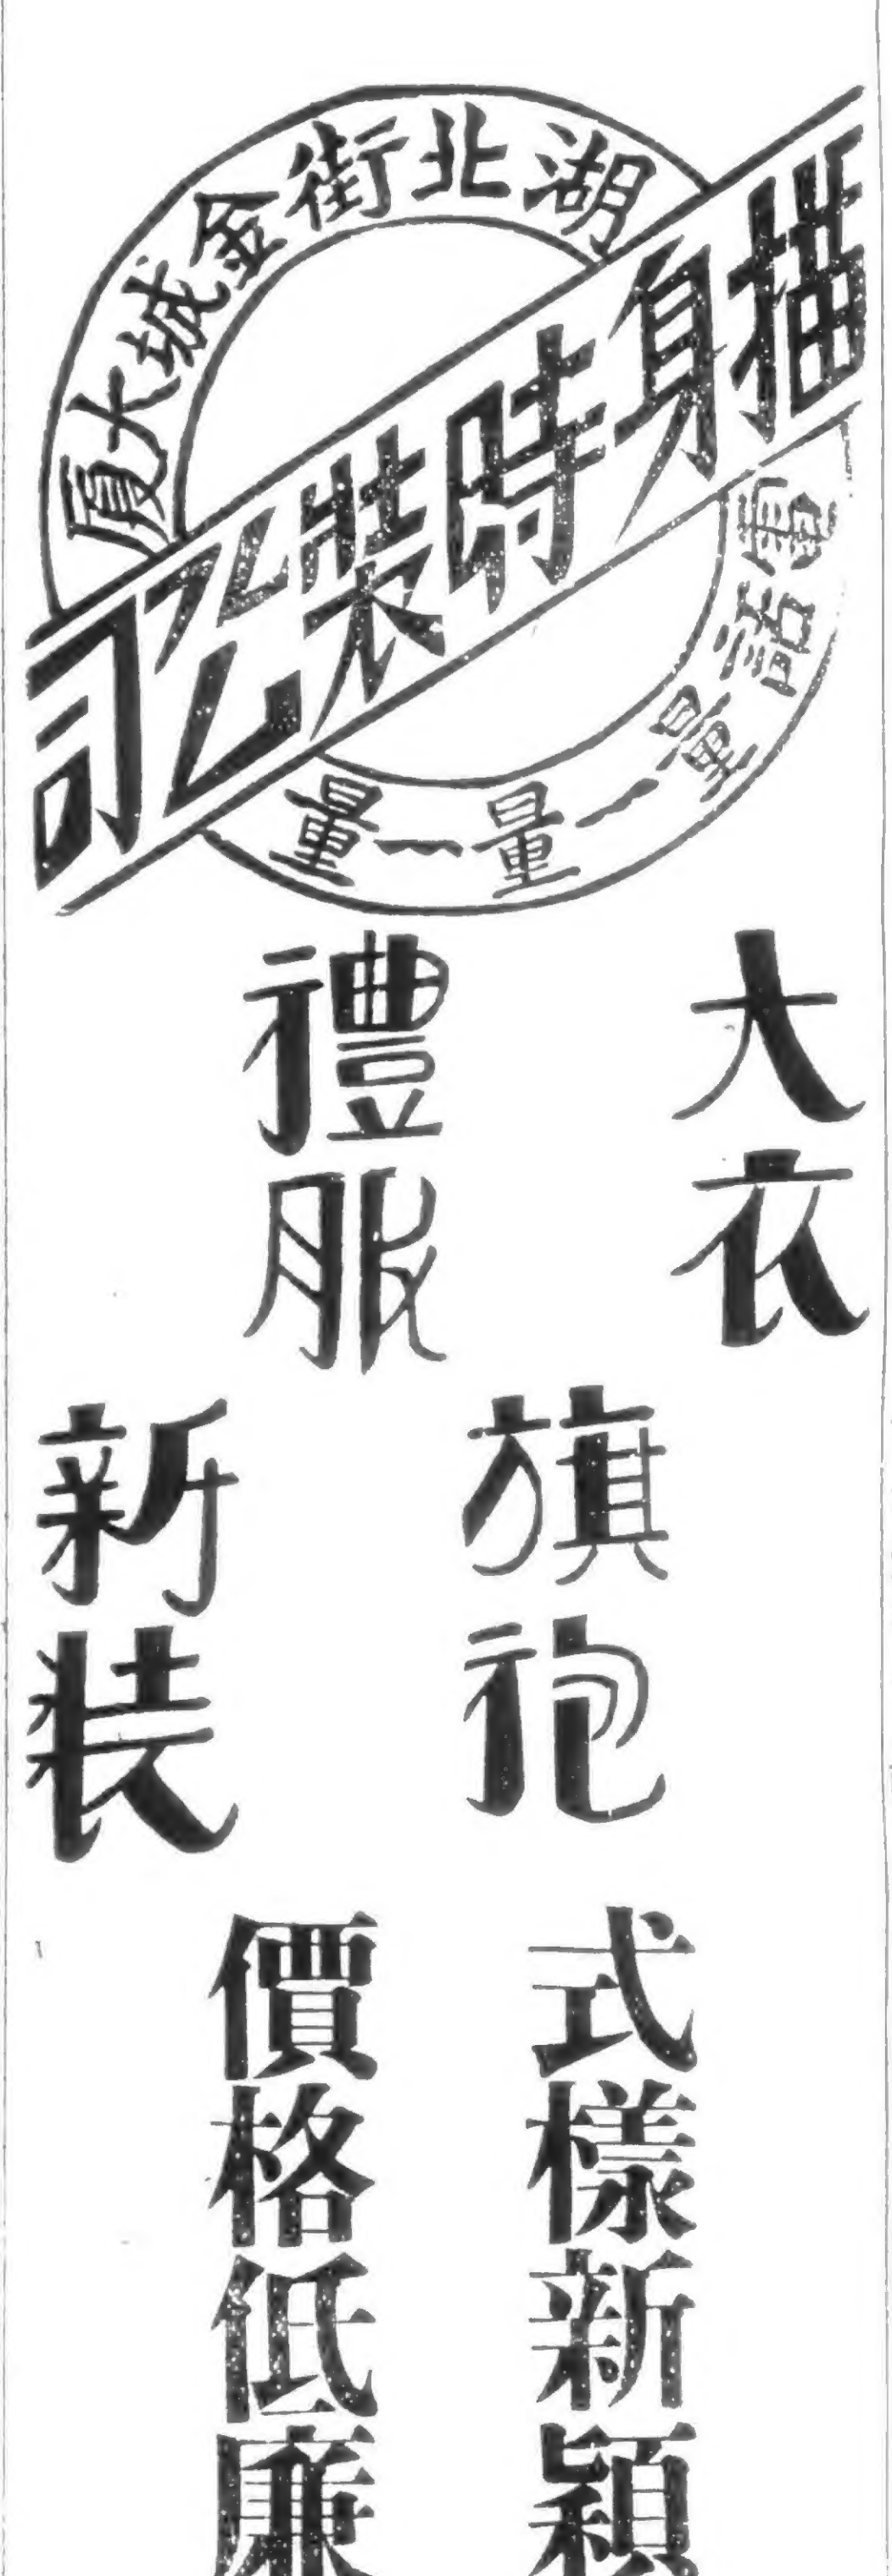 湖北街金城大厦
描身時裝公司
電話量一量一量
大衣
旗袍
禮服
新裝
式樣新穎
價格低廉